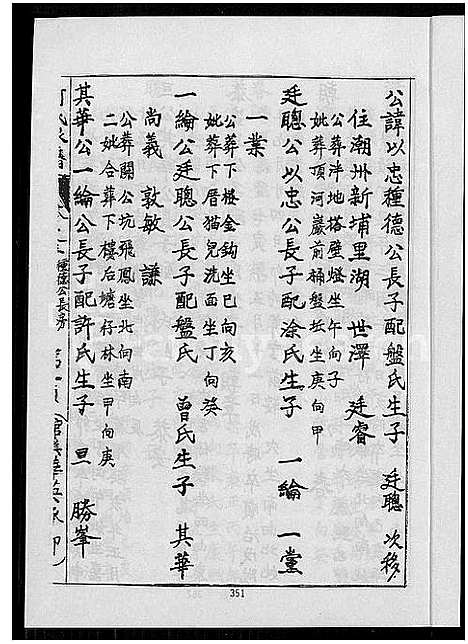 公諱以忠種德公長子配盤氏生子 廷聰 次移
住潮州新埔里湖 世澤 廷睿
公葬泮地塔壁燈坐午向子
妣葬頂河巖前桶盤坵坐庚向甲
廷聰公以忠公長子配涂氏生子 一綸 一黨
一業
公葬下楼金鈎坐巳向亥
妣葬下厝猫兒洗面坐丁向癸
一綸公廷聰公長子配盤氏 曾氏生子 其華
尚義 敦敏 謙
公葬關公坑飛鳳坐北向南
二妣合葬下樓后塘仔林坐甲向庚
其華公一綸公長子配許氏生子 旦 勝峯
種德公長房
351